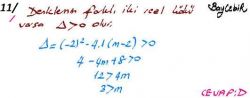 11/ Denklemin farklı iki reel kökü BayCebir
varsa Δ>0 olur.
Δ=(-2)²-4.1(m-2)>0
4-4m+8>0
12>4m
3>m
CEVAP:D